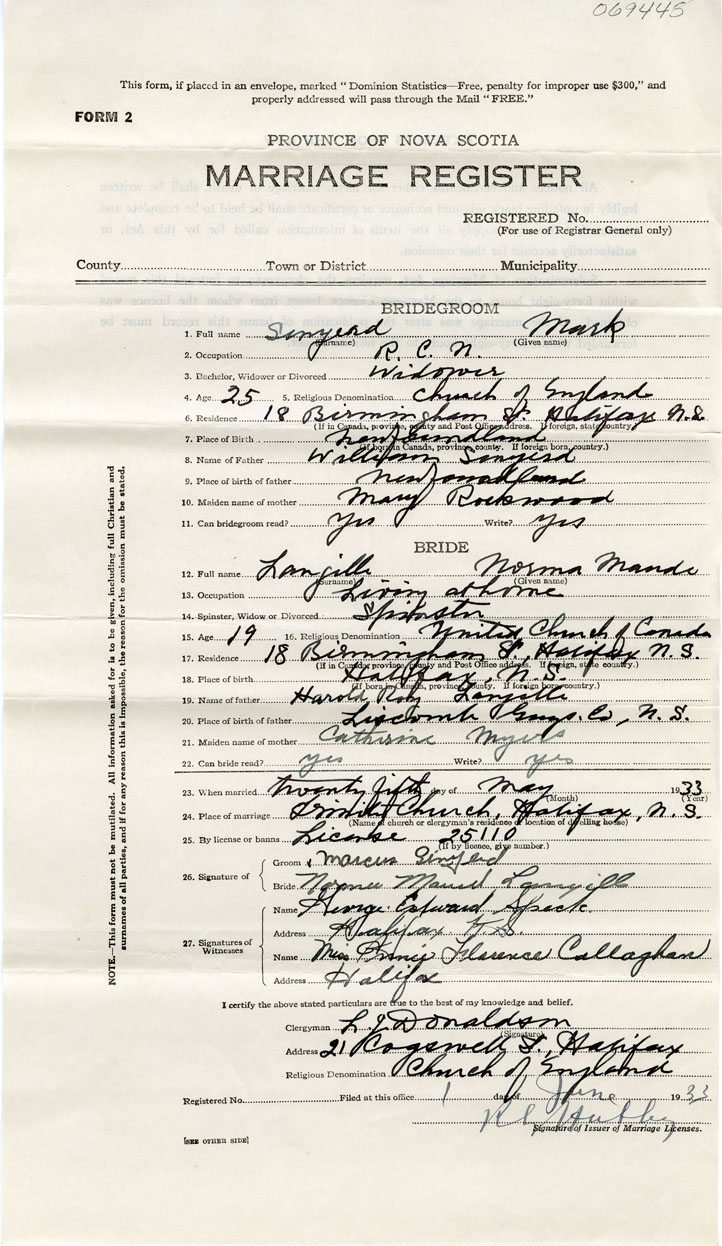 069445
This form, if placed in an envelope, marked "Dominion Statistics—Free, penalty for improper use $300," and
properly addressed will pass through the Mail "FREE."
FORM 2
PROVINCE OF NOVA SCOTIA
MARRIAGE REGISTER
REGISTERED No.
(For use of Registrar General only)
County Town or District Municipality
BRIDEGROOM
1. Full name Sinyerd Mark
(Surname) (Given name)
2. Occupation R. C. N.
3. Bachelor, Widower or Divorced Widower
4. Age 25 5. Religious Denomination Church of England
6. Residence 18 Birmingham St. Halifax N.S.
(If in Canada, province, county and Post Office address. If foreign, state country.)
7. Place of Birth Newfoundland
(If born in Canada, province, county. If foreign born, country.)
8. Name of Father William Sinyerd
9. Place of birth of father Newfoundland
10. Maiden name of mother Mary Rockwood
11. Can bridegroom read? Yes Write? Yes
BRIDE
12. Full name Langille Norma Maude
(Surname) (Given name)
13. Occupation Living at home
14. Spinster, Widow or Divorced Spinster
15. Age 19 16. Religious Denomination United Church of Canada
17. Residence 18 Birmingham St., Halifax N.S.
(If in Canada, province, county and Post Office address. If foreign, state country.)
18. Place of birth Halifax, N.S.
(If born in Canada, province, county. If foreign born, country.)
19. Name of father Harold Roy Langille
20. Place of birth of father Liscomb Guys. Co., N. S.
21. Maiden name of mother Catherine Myers
22. Can bride read? yes Write? yes
23. When married twenty fifth day of May 1933
(Month) (Year)
24. Place of marriage Trinity Church, Halifax, N. S.
(Name of church or clergyman's residence or location of dwelling house)
25. By license or banns License 25110
(If by licence, give number.)
26. Signature of
Groom Marcus Sinyerd
Bride Norma Maud Langille
27. Signatures of Witnesses
Name George Edward Speck
Address Halifax N.S.
Name Miss Florence Callaghan
Address Halifax
I certify the above stated particulars are true to the best of my knowledge and belief.
Clergyman L. J. Donaldson
(Signature)
Address 21 Cogswell St., Halifax
Religious Denomination Church of England
Registered No. Filed at this office 1 day of June 1933
Signature of Issuer of Marriage Licenses.
[SEE OTHER SIDE]
NOTE.—This form must not be mutilated. All information asked for is to be given, including full Christian and
surnames of all parties, and if for any reason this is impossible, the reason for the omission must be stated.